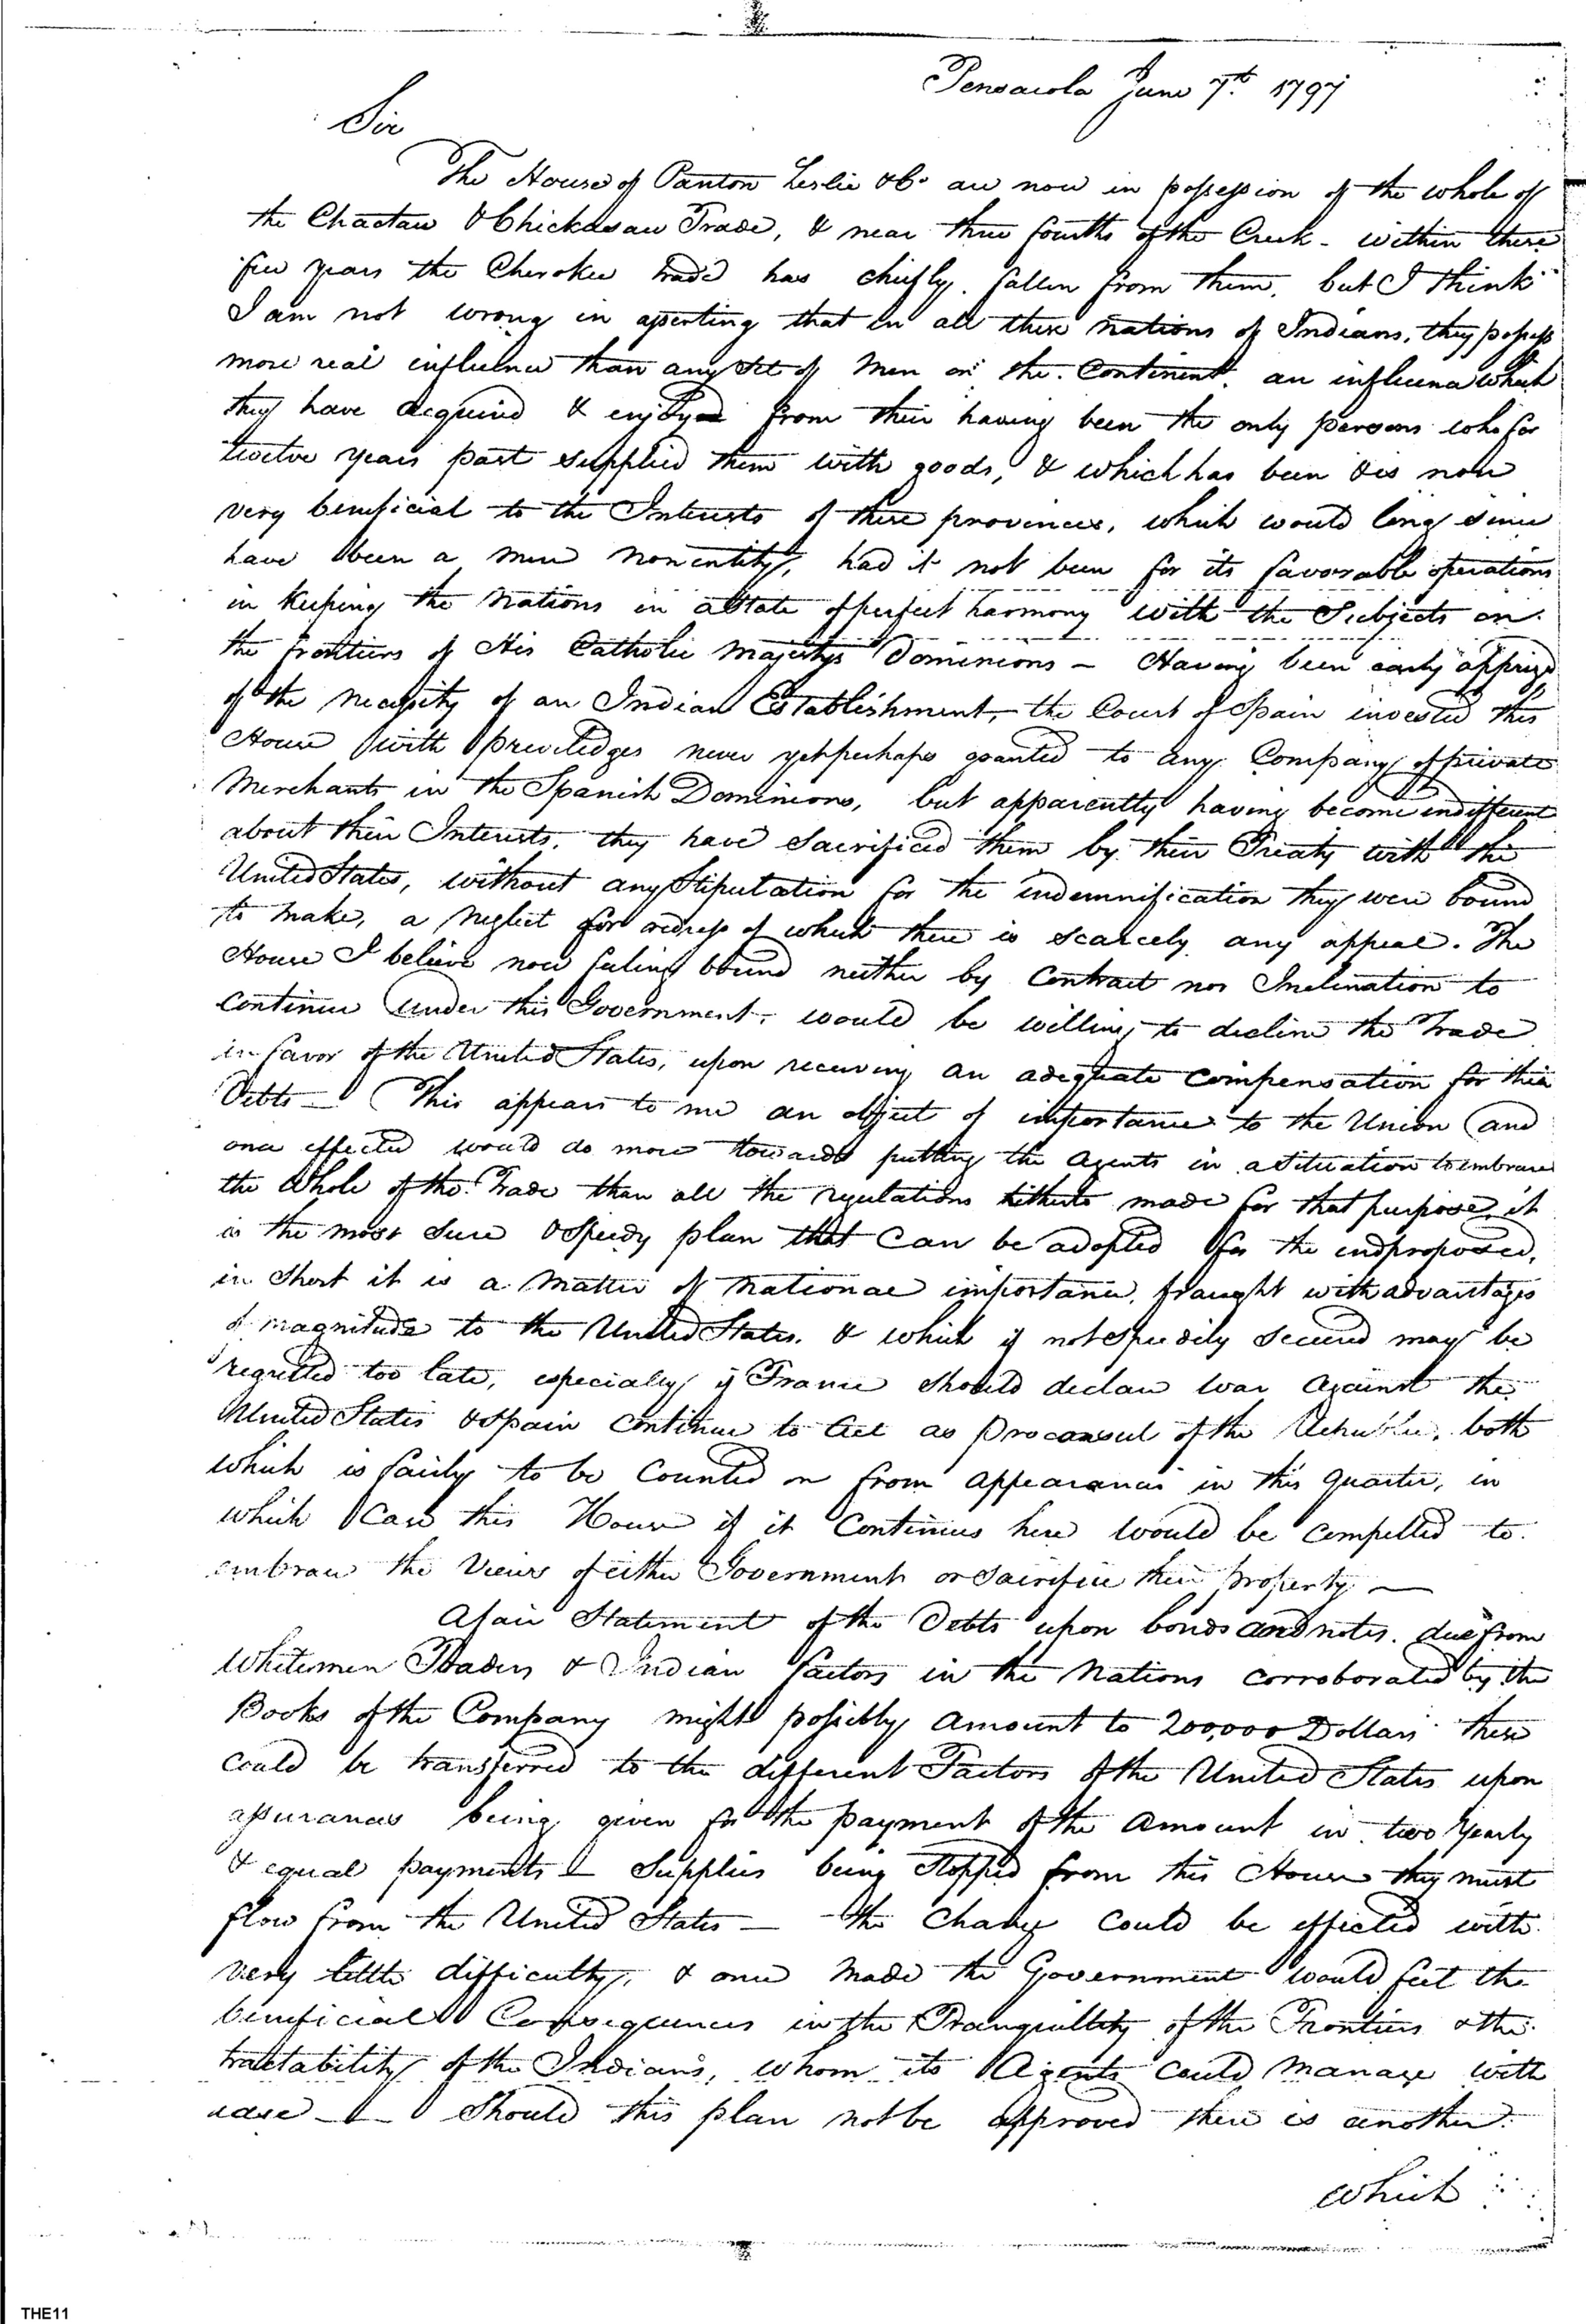 Pensacola June 7th. 1797
Sir
The House of Panton Leslie & Co. are now in possession of the whole of
the Chactaw & Chickasaw Trade, & near three fourths of the Creek - within these
few years the Cherokee trade has chiefly fallen from them, but I think
I am not wrong in asserting that in all these nations of Indians, they possess
more real influence than any Set of Men on the Continent, an influence which
they have acquired & enjoyed from their having been the only persons who for
twelve years past supplied them with goods, & which has been & is now
very beneficial to the Interests of these provinces, which would long since
have been a mere nonentity, had it not been for its favorable operations
in keeping the Nations in a State of perfect harmony with the Subjects on
the frontiers of His Catholic Majestys Dominions - Having been early apprized
of the necessity of an Indian Establishment, the Court of Spain invested this
House with priviledges never yet perhaps granted to any Company of private
Merchants in the Spanish Dominions, but apparently having become indifferent
about their Interests, they have Sacrificed them by their Treaty with the
United States, without any Stipulation for the indemnification they were bound
to make, a neglect for redress of which there is scarcely any appeal. The
House I believe now feeling bound neither by Contract nor Inclination to
Continue under this Government, would be willing to decline the Trade
in favor of the United States, upon receiving an adequate compensation for their
Debts - This appears to me an object of importance to the Union and
once effected would do more towards putting the Agents in a Situation to embrace
the Whole of the Trade than all the regulations hitherto made for that purpose, it
is the most sure & Speedy plan that can be adopted for the end proposed,
in Short it is a Matter of National importance, fraught with advantages
of magnitude to the United States, & which if not Speedily Secured may be
regretted too late, especially if France Should declare War against the
United States & Spain Continue to Act as proconsul of the Republic, both
which is fairly to be Counted on from appearances in this Quarter, in
which Case this House if it Continues here would be compelled to
embrace the Views of either Government or Sacrifice their property -
A fair Statement of the Debts upon bonds and notes, due from
Whitemen Traders & Indian factors in the Nations corroborated by the
Books of the Company might possibly Amount to 200,000 Dollars these
could be transferred to the different Factors of the United States upon
assurances being given for the payment of the Amount in two Yearly
& equal payments - Supplies being Stopped from this House they must
flow from the United States - the Change could be effected with
very little difficulty, & once made the Government would feel the
beneficial Consequences in the Tranquillity of the Frontiers & the
tractability of the Indians, whom its Agents could manage with
ease - Should this plan not be approved there is another
which
THE11